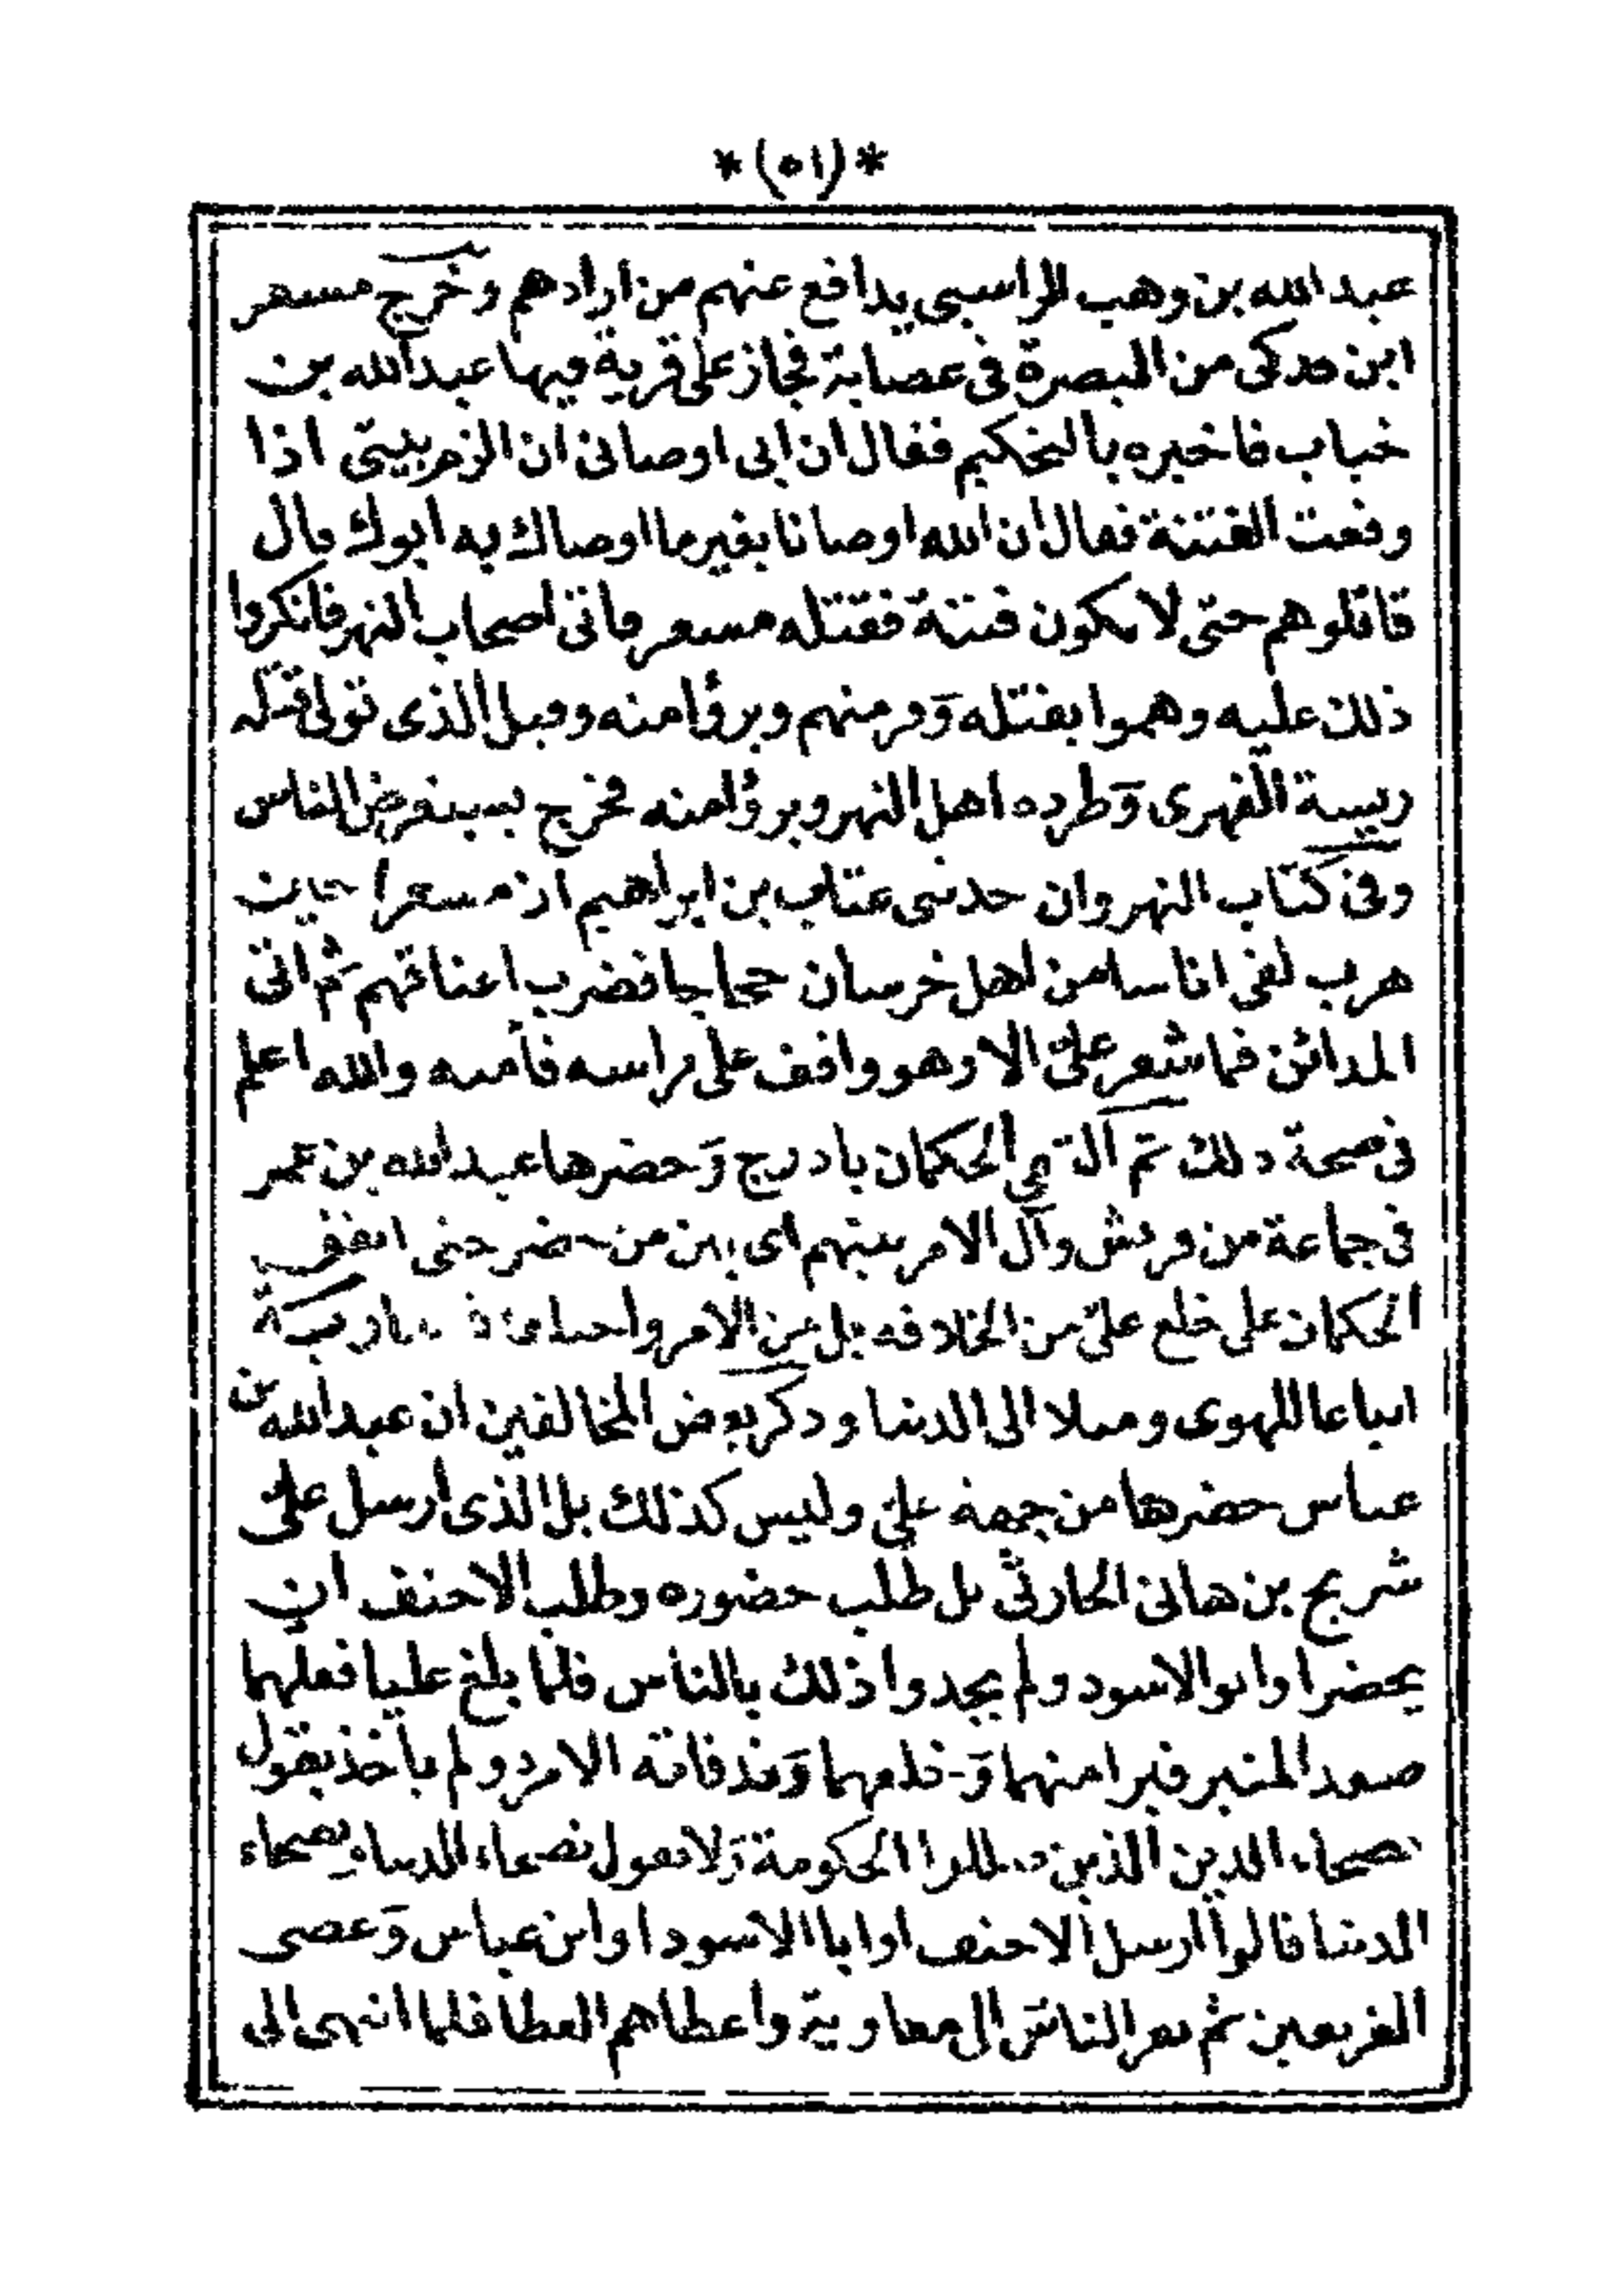 *(٥١)*
عبد الله بن وهب الراسبي يدافع عنهم من ارادهم وخرج مسعر
ابن فدكى من البصرة فى عصابة فجاز على قرية فيها عبد الله بن
خباب فاخبره بالتحكيم فقال ان ابى اوصانى ان الزم بيتى اذا
وقعت الفتنة فقال ان الله اوصانا بغير ما اوصاك به ابوك قال
قاتلوهم حتى لا تكون فتنة فقتله مسعر فاتى اصحاب النهر فانكروا
ذلك عليه وهموا بقتله وفر منهم وبرؤا منه وقيل الذى تولى قتله
ريسة الفهرى وطرده اهل النهر وبرؤا منه فخرج يستعرض الناس
وفى كتاب النهروان حدثنى عتاب بن ابراهيم ان مسعرا حين
هرب لقى اناسا من اهل خرسان حجاجا فضرب اعناقهم ثم اتى
المدائن فما شعر علىّ الا وهو واقف على راسه فأمنه والله اعلم
فى صحة ذلك ثم التقى الحكمان باذرج وحضرها عبد الله بن عمر
فى جماعة من قريش وآل الامر بينهم اى بين من حضر حتى اتفق
الحكمان على خلع علىّ من الخلافة بل من الامر واحدا
اتباعا للهوى وميلا الى الدنيا وذكر بعض المخالفين ان عبد الله بن
عباس حضرها من جهة علىّ وليس كذلك بل الذى ارسل علىّ
شريح بن هانئ الحارثى بل طلب حضوره وطلب الاحنف ان
يحضر او ابو الاسود ولم يجدوا ذلك بالناس فلما بلغ عليا فعلهما
صعد المنبر فبرا منهما وخلعهما وقد فاته الامر ولم يأخذ بقول
نصحاء الدين الذين ابطلوا الحكومة ولا بقول نصحاء الدنيا ونصحاء
الدنيا قالوا ارسل الاحنف او ابا الاسود او ابن عباس وعصى
الفريقين ثم نفر الناس الى معاوية واعطاهم العطا فلما انتهى الى